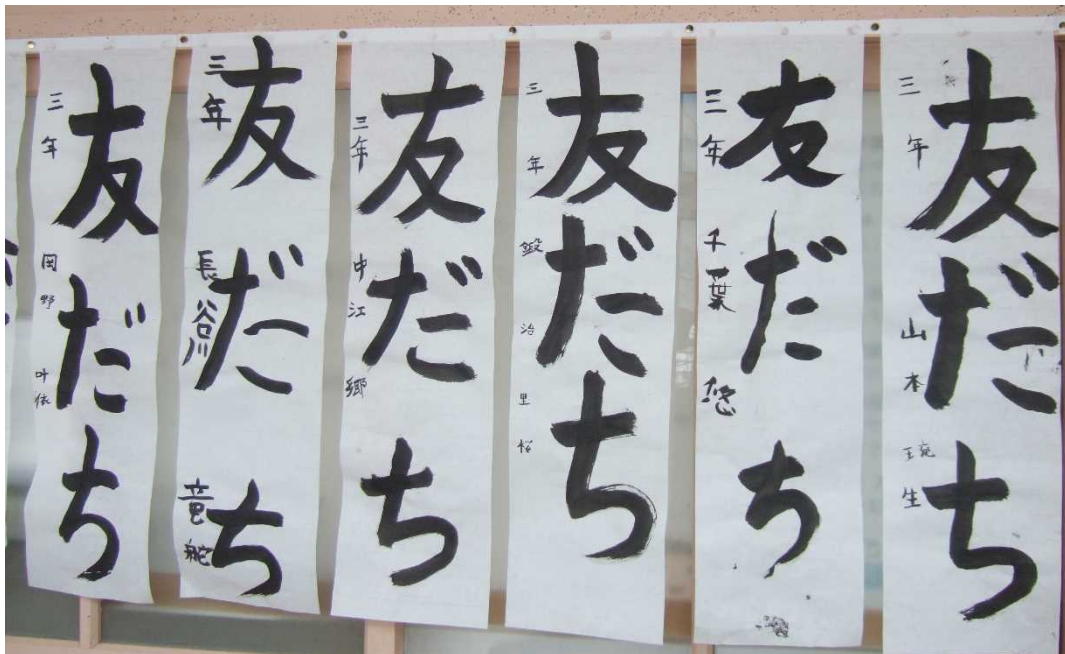 友だち
三年 山本 琉生
友だち
三年 千葉 悠
友だち
三年 鍛治里桜
友だち
三年 中江 郷
友だち
三年 長谷川 竜舵
友だち
三年 岡野 叶依